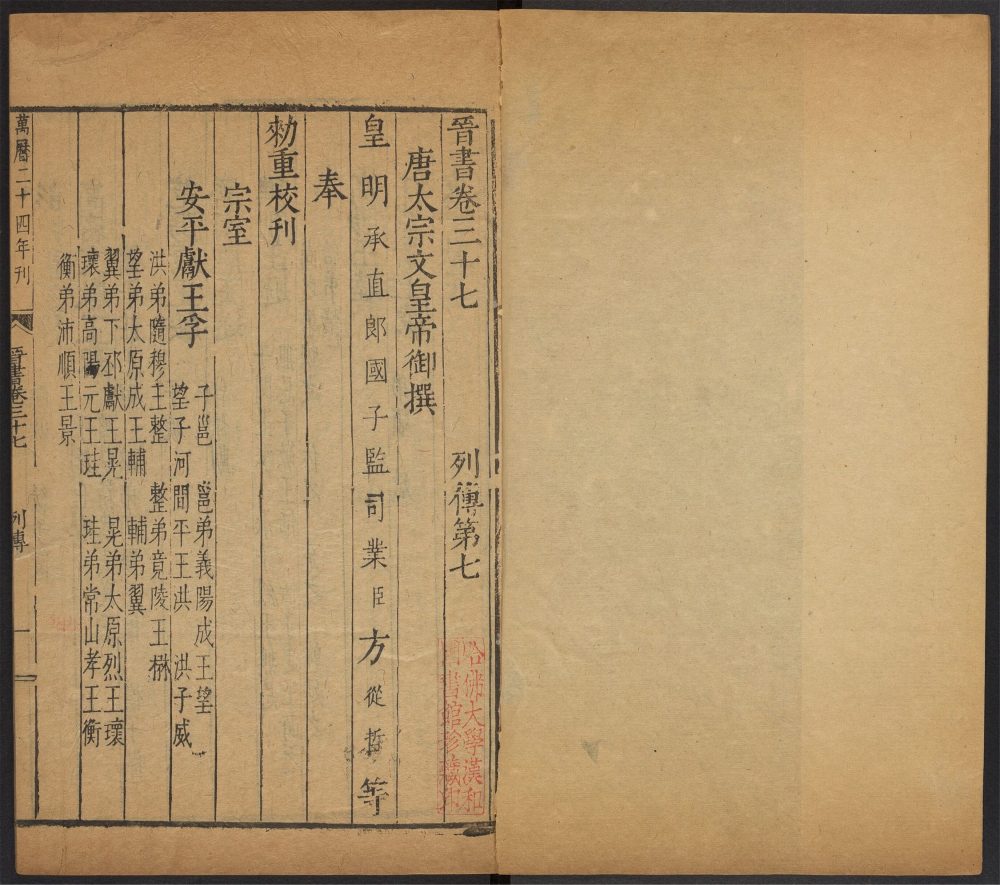 晉書卷三十七 列傳第七
唐太宗文皇帝御撰
皇明承直郎國子監司業臣方從哲等
奉
勑重校刊
宗室
安平獻王孚 子邕 邕弟義陽成王望
望子河間平王洪 洪子威
洪弟隨穆王整 整弟竟陵王楙
望弟太原成王輔 輔弟翼
翼弟下邳獻王晃 晃弟太原烈王瓌
瓌弟高陽元王珪 珪弟常山孝王衡
衡弟沛順王景
萬曆二十四年刊
晉書卷三十七 列傳 一
哈佛大學漢和
圖書館珍藏印